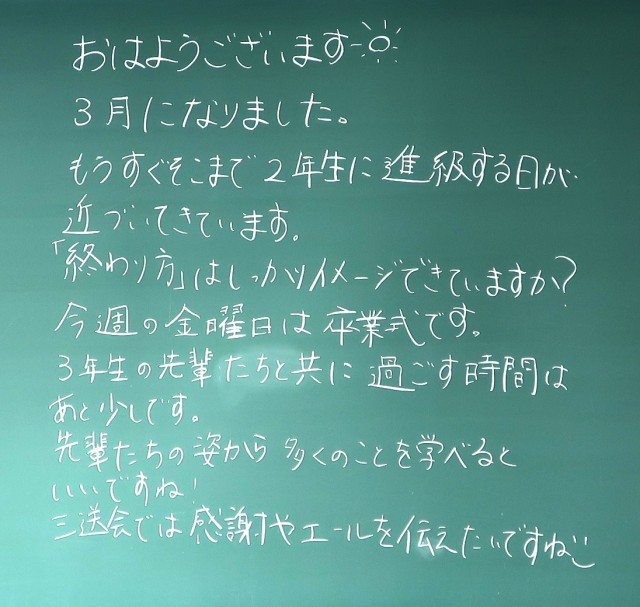 おはようございます
3月になりました。
もうすぐそこまで2年生に進級する日が
近づいてきています。
「終わり方」はしっかりイメージできていますか？
今週の金曜日は卒業式です。
3年生の先輩たちと共に過ごす時間は
あと少しです。
先輩たちの姿から多くのことを学べると
いいですね！
三送会では感謝やエールを伝えたいですね